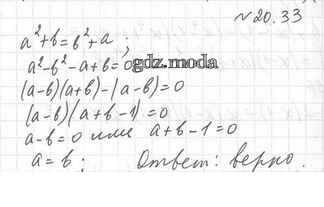 №20.33
a²+b=b²+a ;
a²-b²-a+b=0
gdz.moda
(a-b)(a+b)-(a-b)=0
(a-b)(a+b-1)=0
a-b=0 или a+b-1=0
a=b ; Ответ: верно.